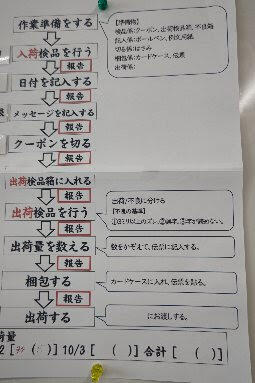 作業準備をする
【準備物】
入荷検品を行う
報告
切る係:はさみ
梱包係:カードケース、伝票
出荷係:
日付を記入する
報告
メッセージを記入する
報告
クーポンを切る
報告
出荷検品箱に入れる
出荷検品を行う
報告
出荷/不良に分ける
【不良の基準】
出荷量を数える
数をかぞえて、伝票に記入する。
梱包する
報告
カードケースに入れ、伝票を貼る。
出荷する
にお渡しする。
荷量
10/3 [ ( ) ] 合計 [ ( ) ]